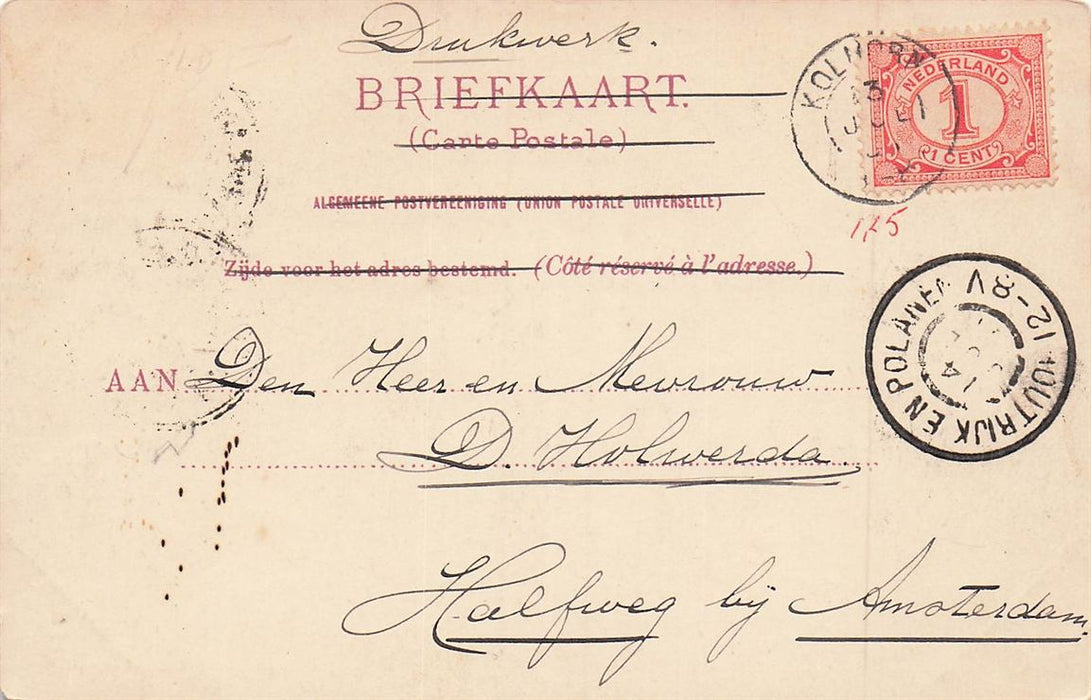 Drukwerk.
BRIEFKAART.
(Carte Postale)
ALGEMEENE POSTVEREENIGING (UNION POSTALE UNIVERSELLE)
Zijde voor het adres bestemd. (Côté réservé à l'adresse.)
KOLHORN
13
NEDERLAND
1
1 CENT
175
12-8V
HOUTRIJK EN POLANEN
AAN Den Heer en Mevrouw
D. Holwerda
Halfweg bij Amsterdam.